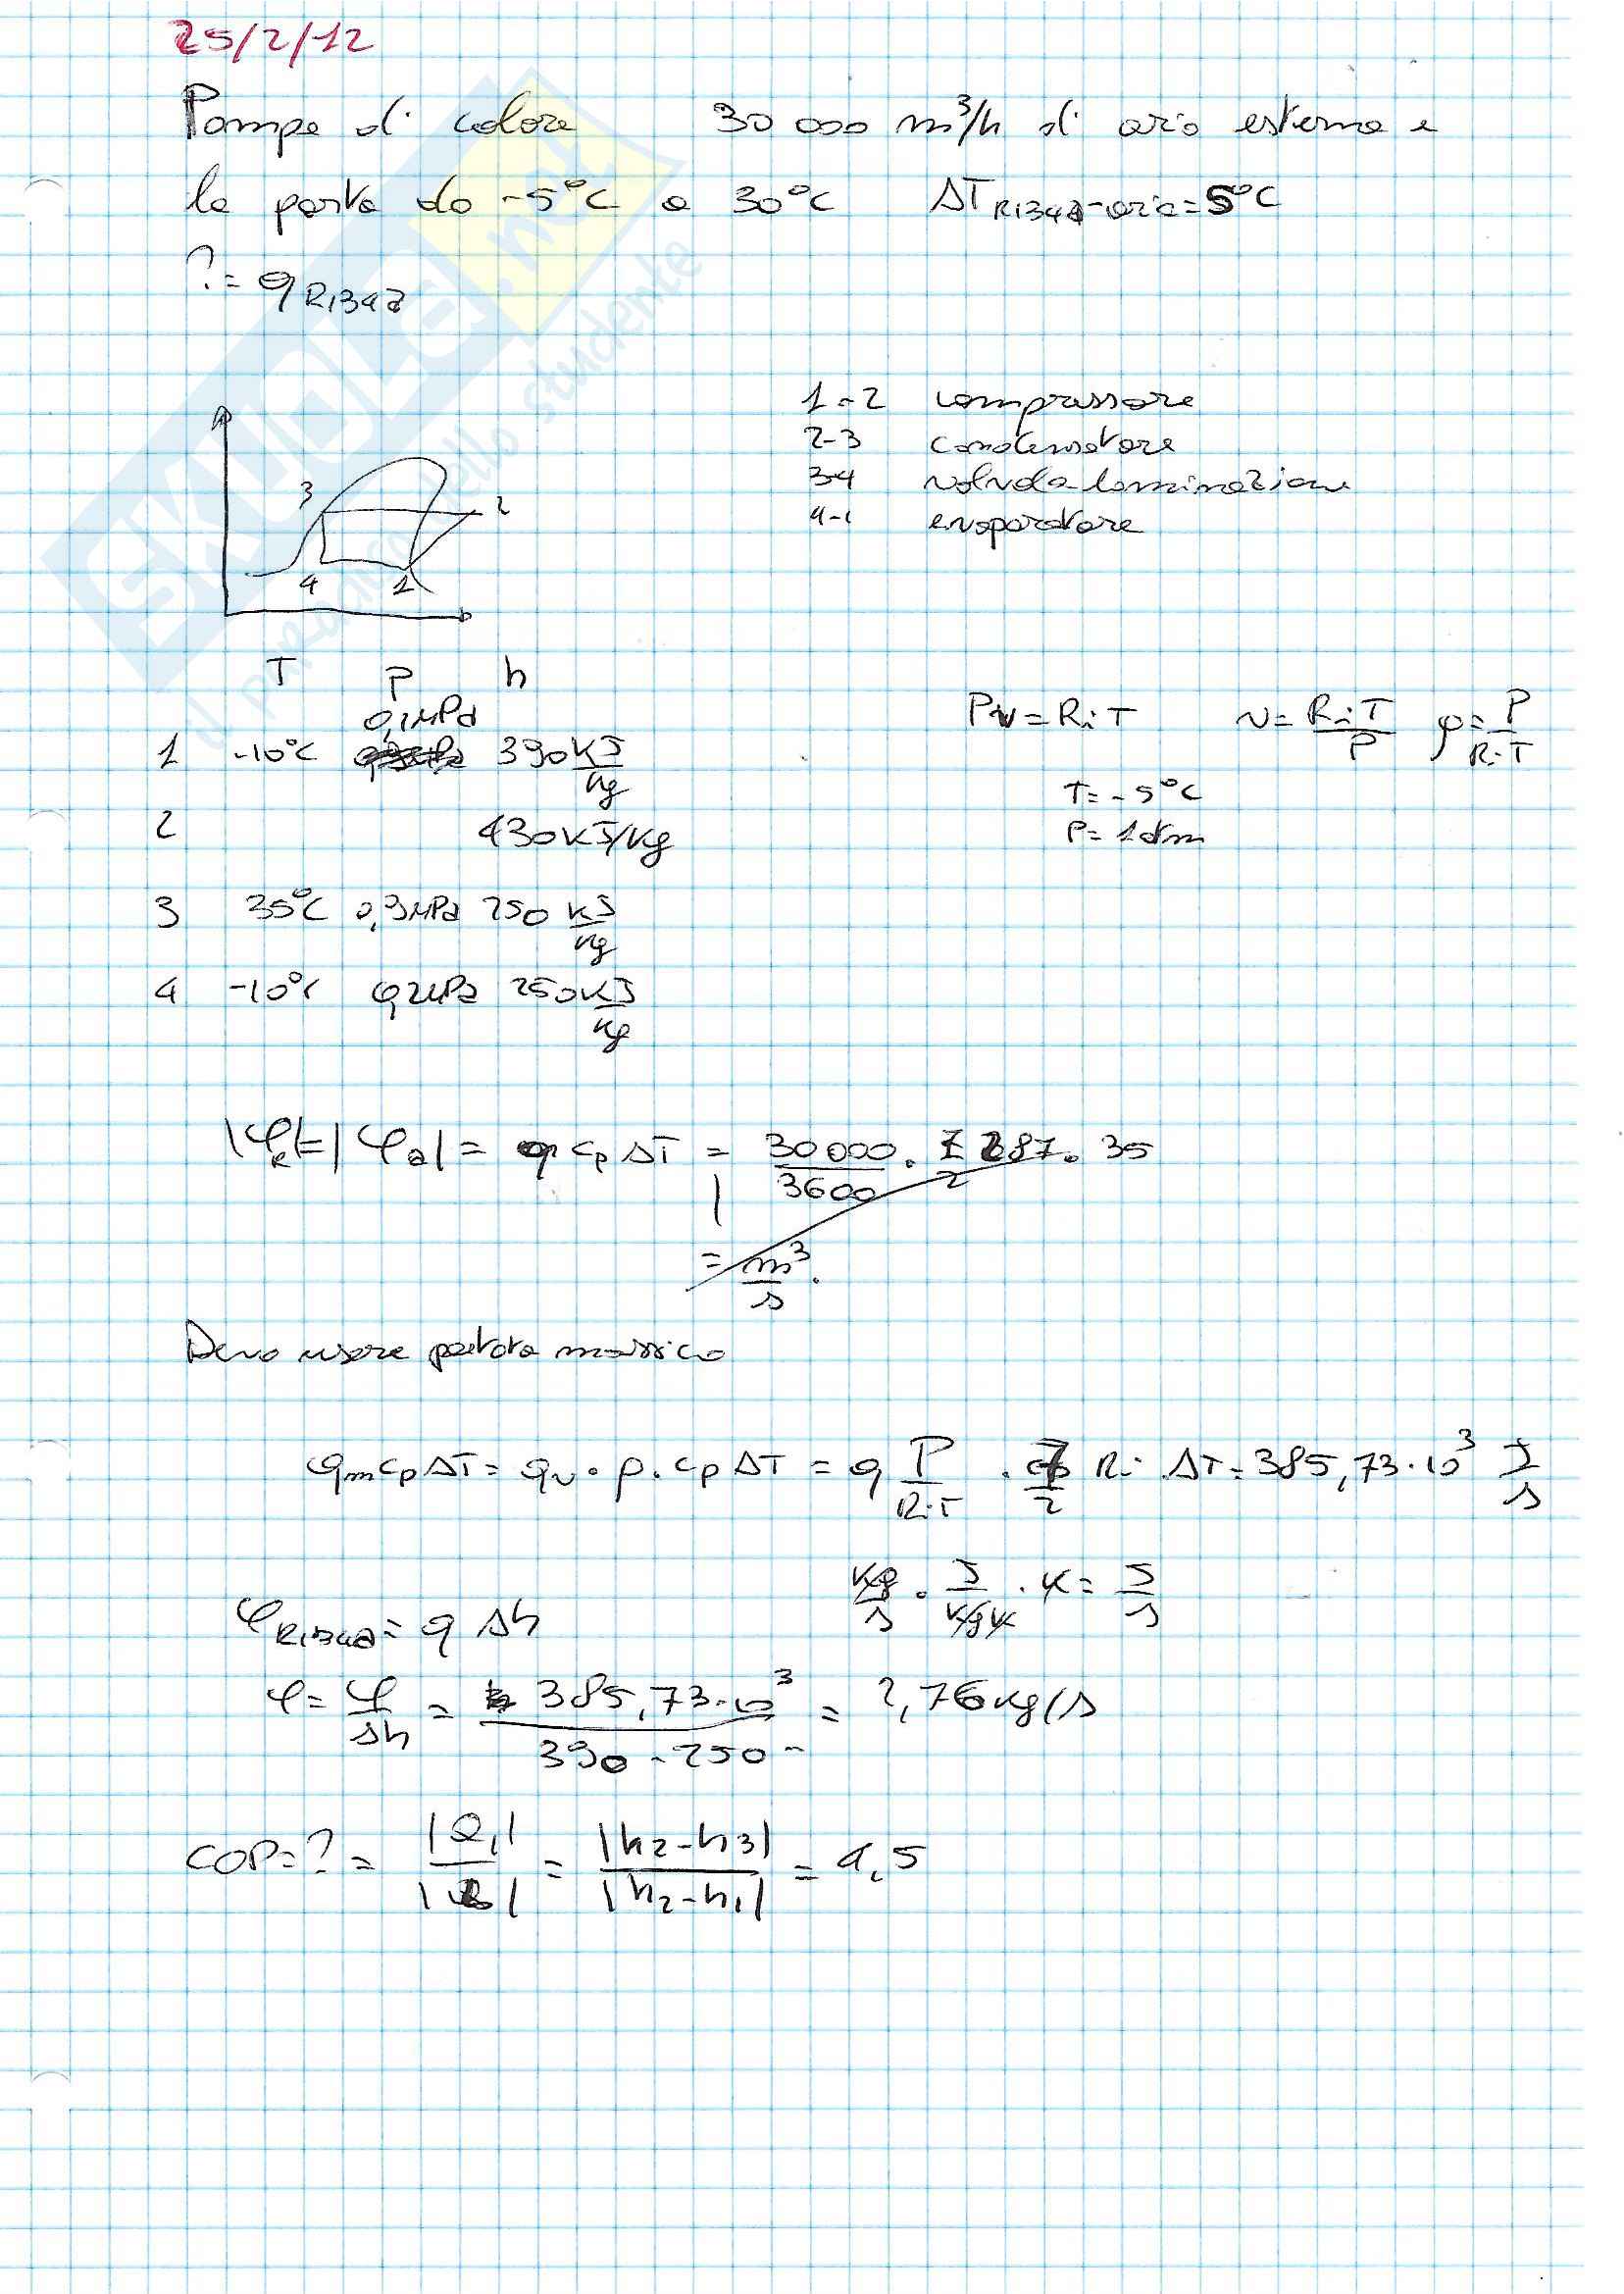 25/2/12
Pompa di calore 30 000 m³/h di aria esterna e
la porta da -5°C a 30°C ΔT R134a-aria = 5°C
? = q R134a
SKUOLA.net
il paradiso dello studente
1-2 compressore
2-3 condensatore
3-4 valvola laminazione
4-1 evaporatore
3 2
4 1
T P h
0,2MPa
1 -10°C 390 kJ/kg
2 430 kJ/kg
3 35°C 0,9MPa 250 kJ/kg
4 -10°C 0,2MPa 250 kJ/kg
Pv = Ri T v = Ri T/P ρ = P/Ri T
T = -5°C
P = 1atm
|φR| = |φa| = q cp ΔT = 30000/3600 · 7/2 287 · 35
= m³/s ·
Devo usare portata massica
qm cp ΔT = qv · ρ · cp ΔT = q P/Ri T · 7/2 Ri · ΔT = 385,73 · 10³ J/s
kg/s · J/kg K · K = J/s
φR134a = q Δh
φ = φ/Δh = 385,73 · 10³/390 - 250 = 2,76 kg/s
COP = ? = |Q1|/|L| = |h2-h3|/|h2-h1| = 4,5